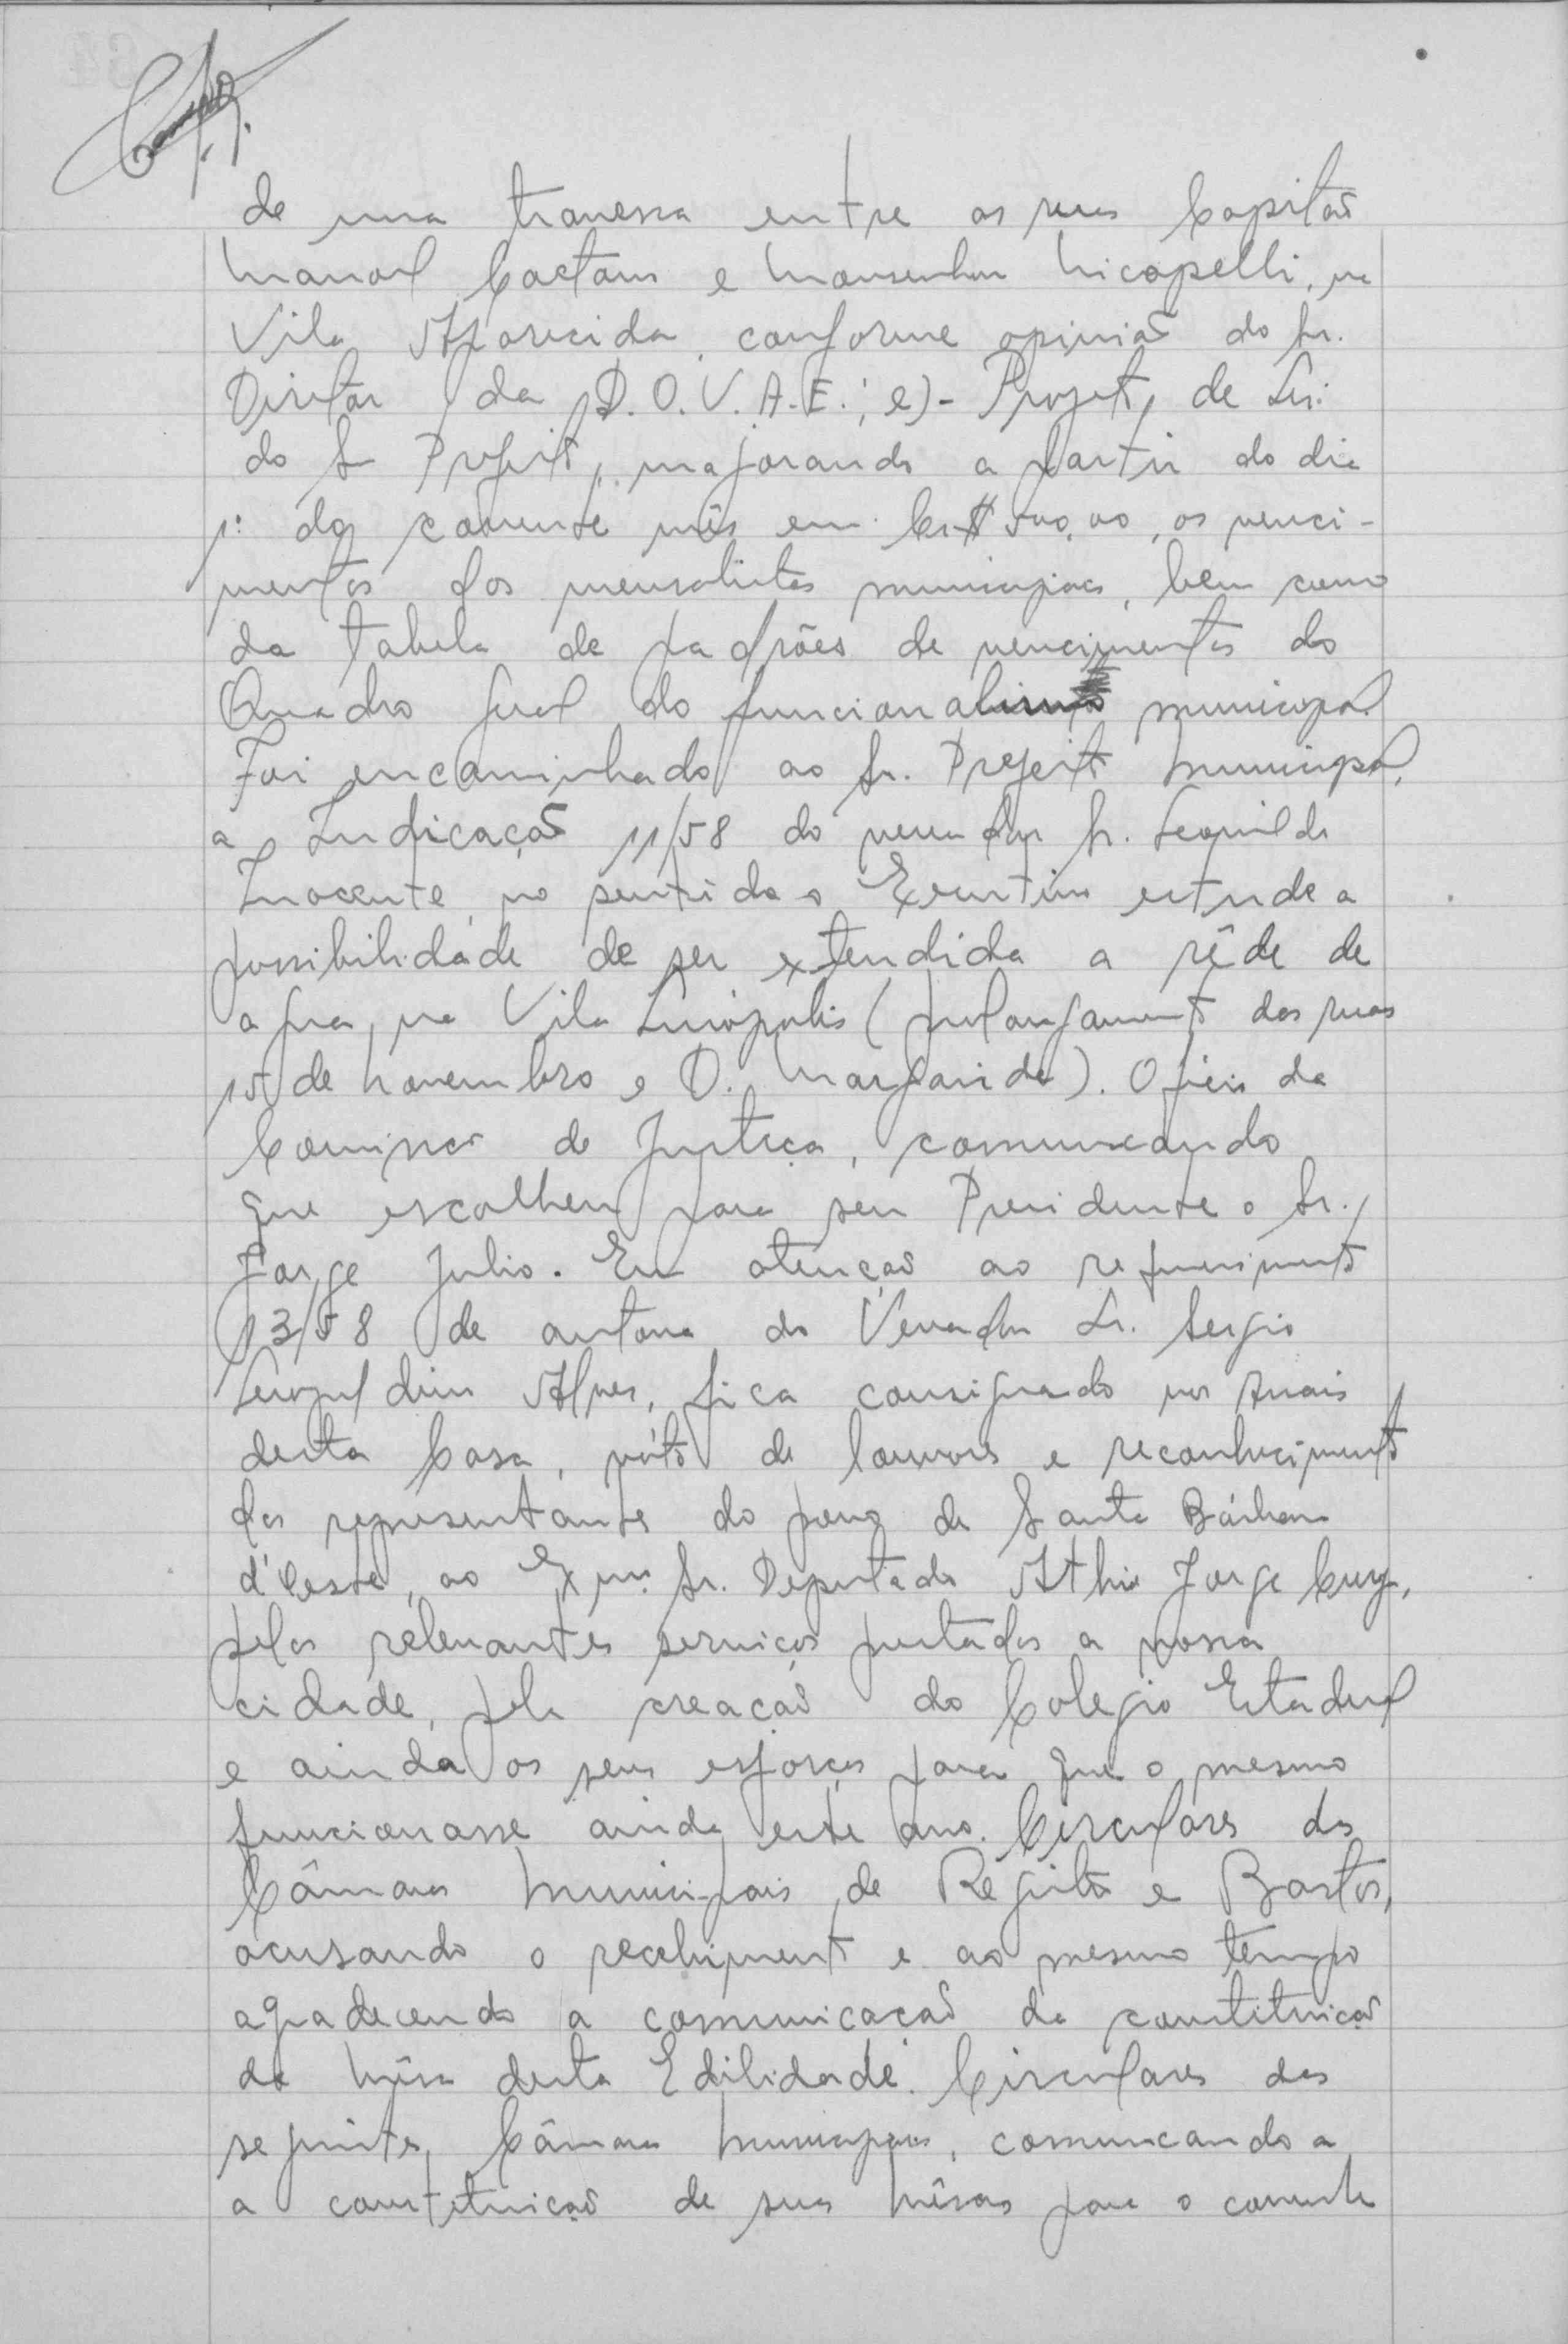 de uma travessa entre as ruas Capitão
Manoel Caetano e Monsenhor Nicopelli, na
Vila Aparecida, conforme opinião do Sr.
Diretor da D.O.V.A.E.; e)- Projeto de Lei
do Sr Prefeito, majorando a partir do dia
1º do corrente mês em Cr$ 500,00, os venci-
mentos dos mensalistas municipaes, bem como
da tabela de padrões de vencimentos do
Quadro Geral do funcionalismo municipal.
Foi encaminhado ao Sr. Prefeito Municipal,
a Indicação 11/58 do vereador Sr. Leopildo
Inocente, no sentido o Executivo estude a
possibilidade de ser extendida a rêde de
agua, na Vila Linópolis (prolongamento das ruas
15 de Novembro e D. Margarida). Oficio da
Comissão de Justiça, comunicando
que escolheu para seu Presidente o Sr.
Jorge Julio. Em atenção ao requerimento
13/58 de autoria do Vereador Sr. Sergio
Leopoldino Alves, fica consignado nos Anais
desta Casa, vóto de louvores e reconhecimento
dos representantes do povo de Santa Bárbara
d'Oeste, ao Exmº. Sr. Deputado Athie Jorge Cury,
pelos relevantes serviços prestados a nossa
cidade, pela creação do Colegio Estadual
e ainda os seus esforços para que o mesmo
funcionasse ainda este ano. Circulares das
Câmaras Municipais de Registro e Bastos,
acusando o recebimento e ao mesmo tempo
agradecendo a comunicação da constituição
da Mêsa desta Edilidade. Circulares das
seguintes Câmaras Municipaes, comunicando a
a constituição de suas Mêsas para o corrente